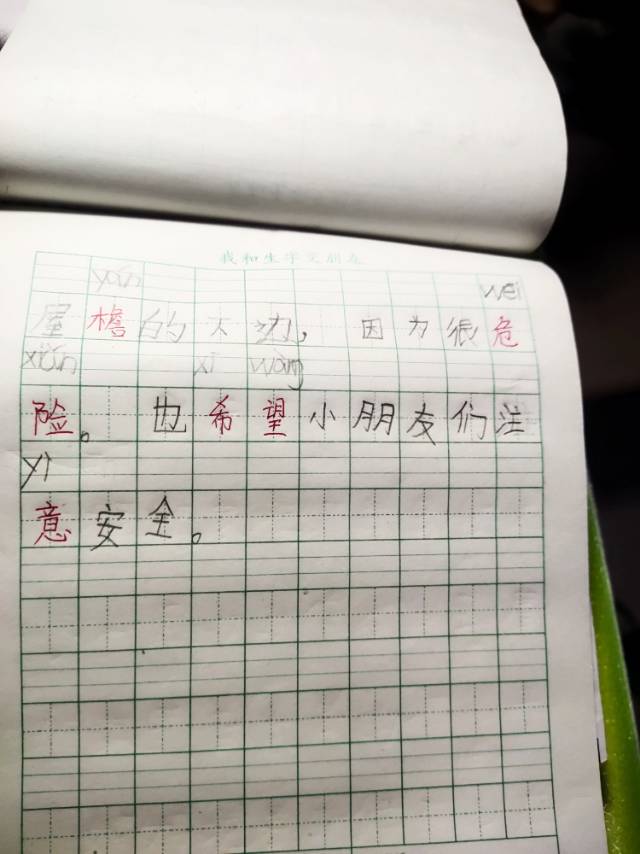 我和生字交朋友
yán wēi
屋檐的下边，因为很危
xiǎn xī wàng
险。也希望小朋友们注
yì
意安全。